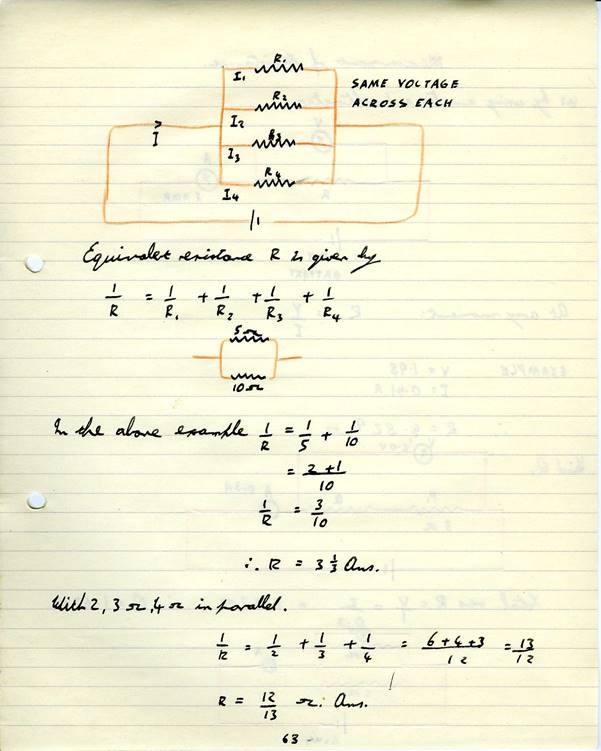 R1
I1
SAME VOLTAGE
ACROSS EACH
R2
I2
I
R3
I3
R4
I4
Equivalet resistance R is given by
1/R = 1/R1 + 1/R2 + 1/R3 + 1/R4
5 Ω
10 Ω
In the above example 1/R = 1/5 + 1/10
= 2+1/10
1/R = 3/10
∴ R = 3 1/3 Ans.
With 2, 3 Ω, 4 Ω in parallel.
1/R = 1/2 + 1/3 + 1/4 = 6+4+3/12 = 13/12
R = 12/13 Ω. Ans.
63